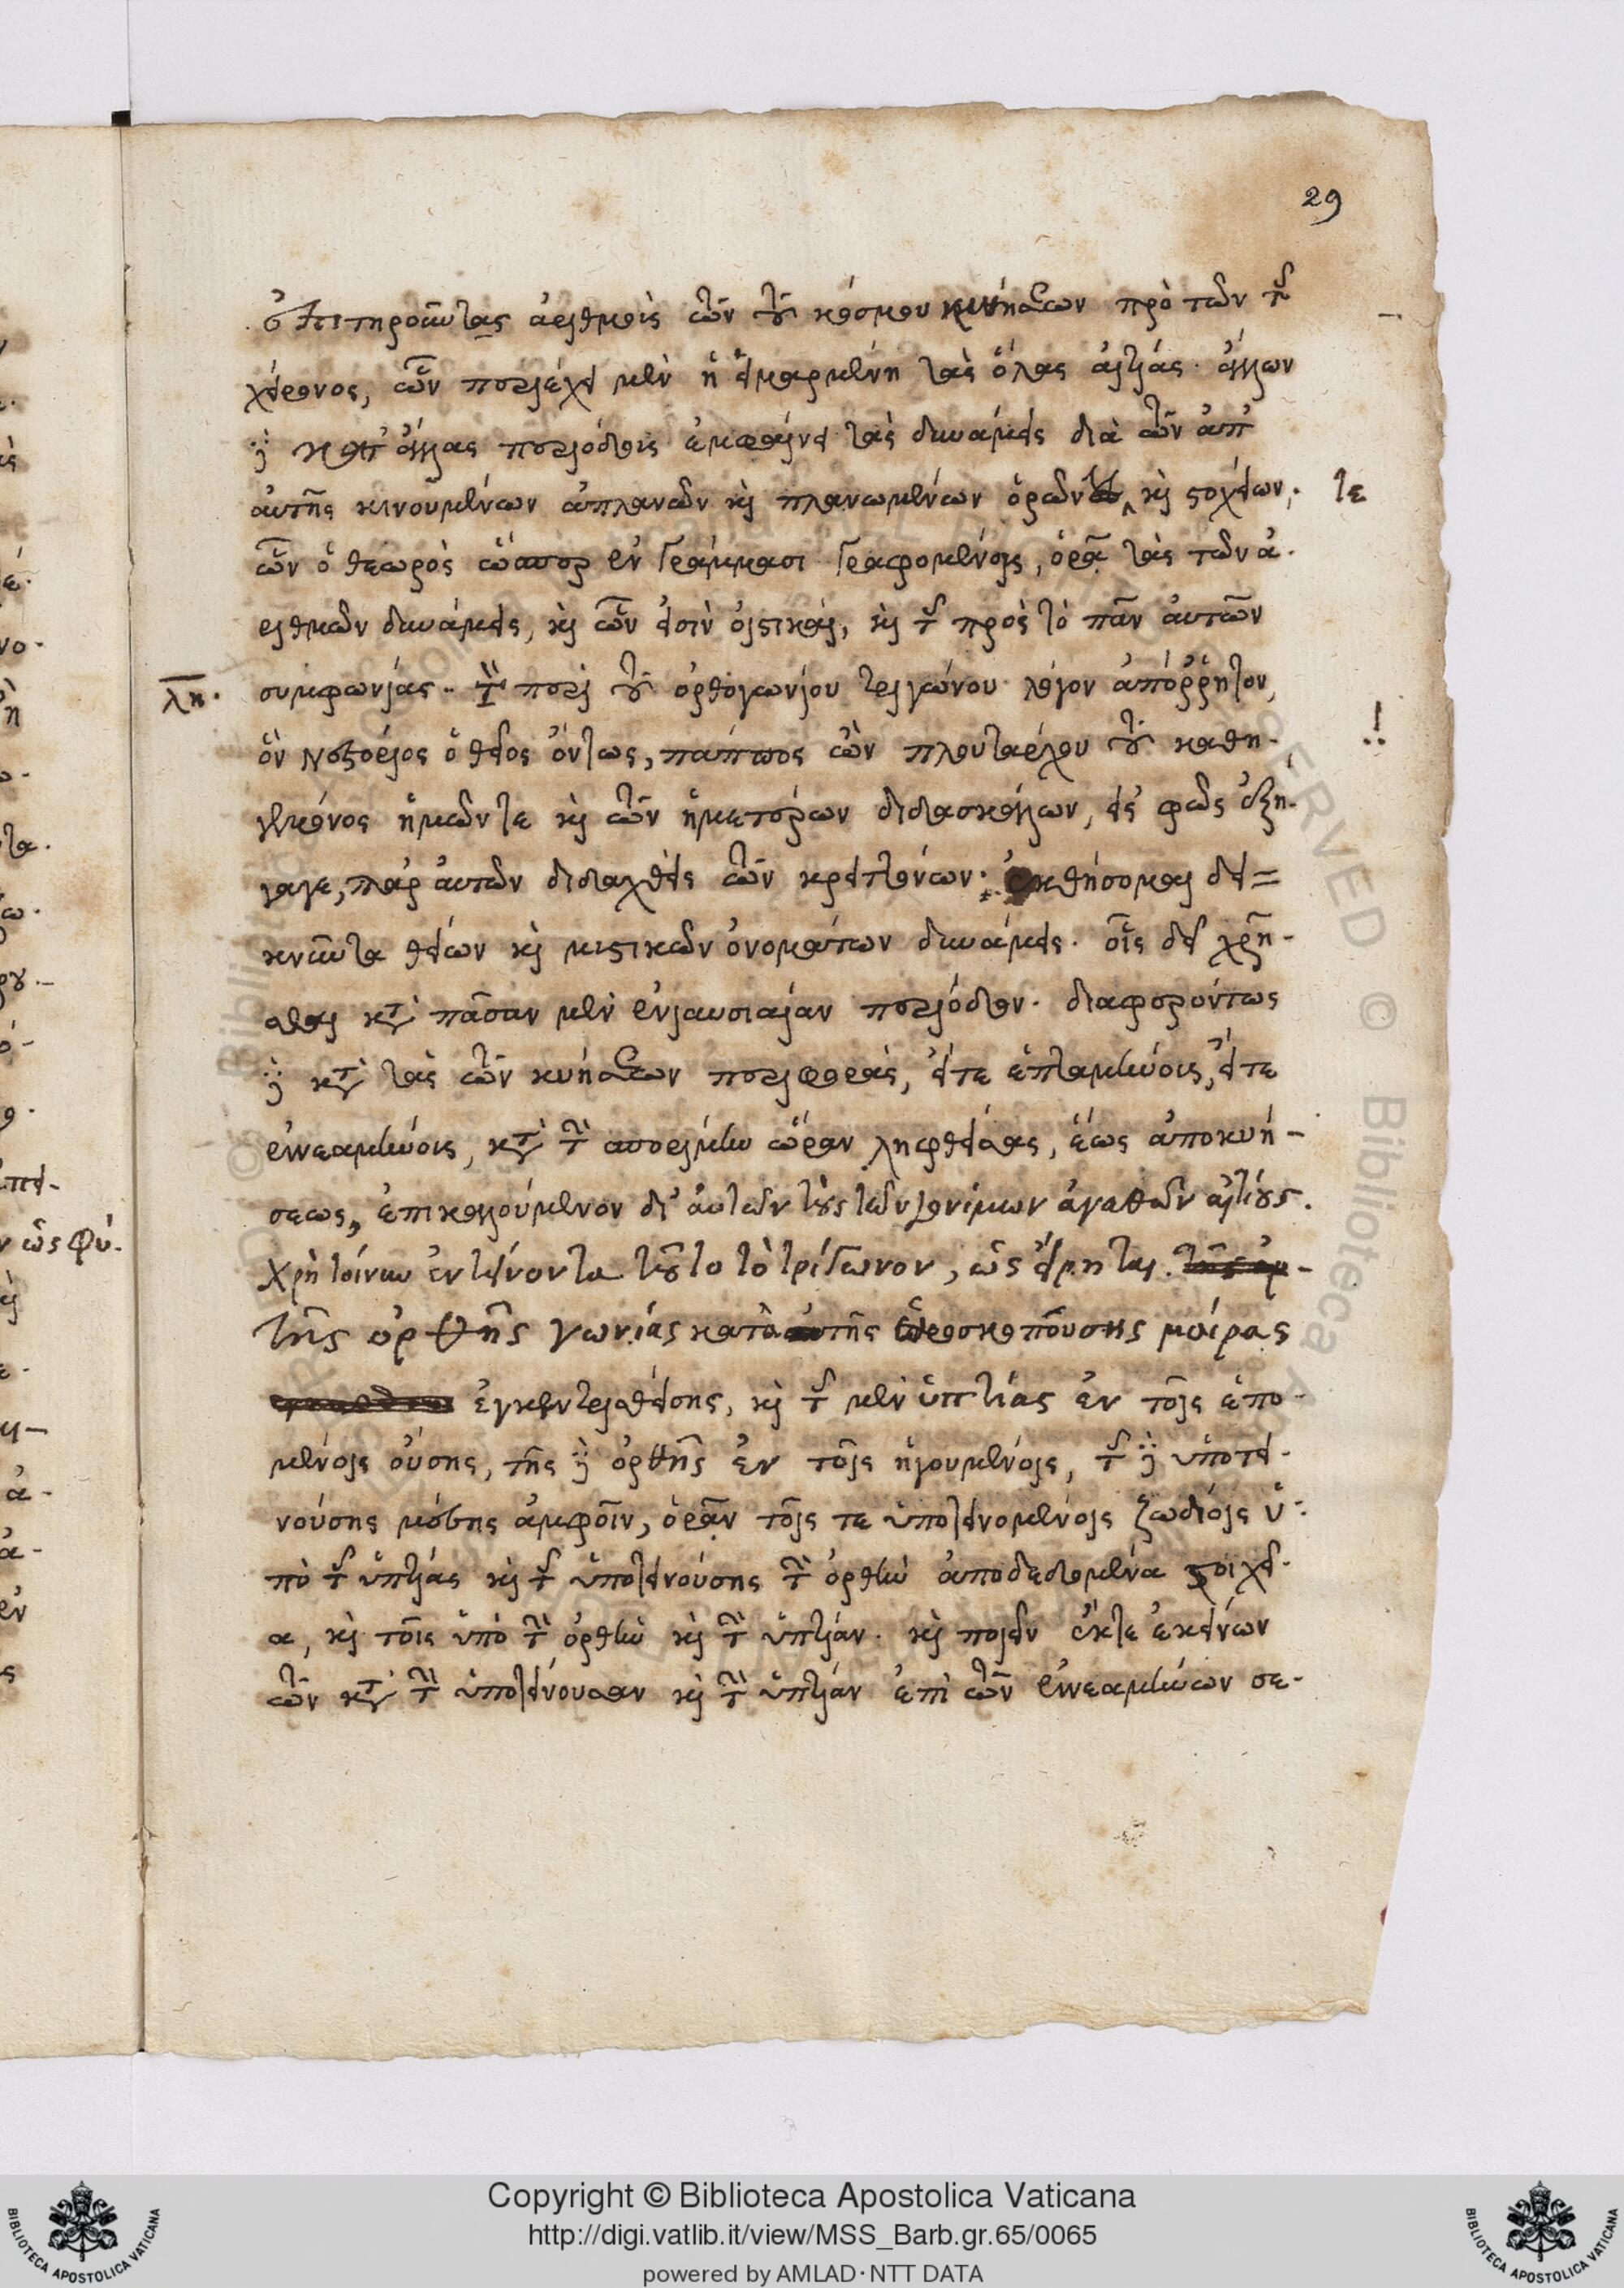 29
ἐπιτηροῦντας ἀριθμοὺς τῶν τοῦ κόσμου κινήσεων πρὸ τῶν τῆς
χείρονος, ὧν περιέχει μὲν ἡ εἱμαρμένη τὰς ὅλας αἰτίας. ἄλλων
δὲ κατ' ἄλλας περιόδους ἐμφαίνει τὰς δυνάμεις διὰ τῶν ἀπ'
αὐτῆς κινουμένων ἀπλανῶν καὶ πλανωμένων ὁρῶν καὶ στοιχείων,
τε
ὧν ὁ θεωρὸς ὥσπερ ἐν γράμμασι γραφομένοις, ὁρᾷ τὰς τῶν ἀ-
ριθμῶν δυνάμεις, καὶ ὧν εἰσὶν οἰστικαί, καὶ τῆς πρὸς τὸ πᾶν αὐτῶν
λη.
συμφωνίας. τὸν περὶ τοῦ ὀρθογωνίου τριγώνου λόγον ἀπόρρητον,
ὃν Νεστόριος ὁ θεῖος ὄντως, πάππος ὢν πλουτάρχου τοῦ καθη-
γεμόνος ἡμῶν τε καὶ τῶν ἡμετέρων διδασκάλων, εἰς φῶς ἐξή-
γαγε, παρ' αὐτῶν διδαχθεὶς τῶν κρειττόνων. ἐκθήσομαι δει=
κνύντα θείων καὶ μυστικῶν ὀνομάτων δυνάμεις. οἷς δεῖ χρῆ-
σθαι κατὰ πᾶσαν μὲν ἐνιαυσιαίαν περίοδον. διαφερόντως
δὲ κατὰ τὰς τῶν κυήσεων περιφοράς, εἴτε ἑπταμήνοις, εἴτε
ἐννεαμήνοις, κατὰ τὴν σπορίμην ὥραν ληφθείσας, ἕως ἀποκυή-
σεως, ἐπικαλούμενον δι' αὐτῶν τοὺς τῶν γονίμων ἀγαθῶν αἰτίους.
χρὴ τοίνυν ἐντείνοντα τοῦτο τὸ τρίγωνον, ὡς εἴρηται.
τῆς ὀρθῆς γωνίας κατὰ τῆς ὡροσκοπούσης μοίρας
ἐγκεντρισθείσης, καὶ τῆς μὲν ὑπτίας ἐν τοῖς ἑπο-
μένοις οὔσης, τῆς δὲ ὀρθῆς ἐν τοῖς ἡγουμένοις, τῆς δὲ ὑποτει-
νούσης μέσης ἀμφοῖν, ὁρᾶν τοῖς τε ὑποτεινομένοις ζωδίοις ὑ-
πὸ τῆς ὑπτίας καὶ τῆς ὑποτεινούσης τὴν ὀρθὴν ἀποδεδομένα στοιχεῖ-
α, καὶ τοῖς ὑπὸ τὴν ὀρθὴν καὶ τὴν ὑπτίαν. καὶ ποιεῖν ἔκ τε ἐκείνων
τῶν κατὰ τὴν ὑποτείνουσαν καὶ τὴν ὑπτίαν ἐπὶ τῶν ἐννεαμήνων σε-
Copyright © Biblioteca Apostolica Vaticana
http://digi.vatlib.it/view/MSS_Barb.gr.65/0065
powered by AMLAD·NTT DATA
BIBLIOTECA APOSTOLICA VATICANA
BIBLIOTECA APOSTOLICA VATICANA